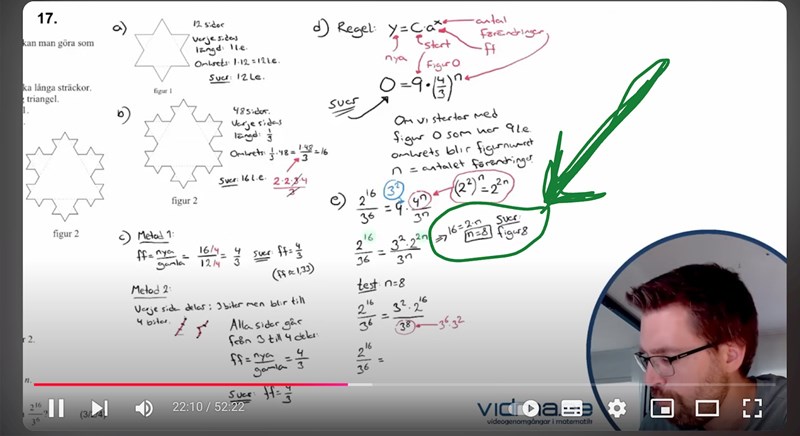 17.
kan man göra som
ka långa sträckor.
triangel.
figur 2
a)
12 sidor
Varje sidas
längd: 1 l.e.
Omkrets: 1·12 = 12 l.e.
Svar: 12 l.e.
figur 1
b)
48 sidor.
Varje sidas
längd: 1/3
Omkrets: 1/3 · 48 = 1·48/3 = 16
Svar: 16 l.e.
2·2·3·4
3
figur 2
c) Metod 1:
ff = nya/gamla = 16/4 / 12/4 = 4/3 Svar: ff = 4/3
(ff ≈ 1,33)
Metod 2:
4 bitar.
Alla sidor går
från 3 till 4 delar
ff = nya/gamla = 4/3
Svar: ff = 4/3
d) Regel: y = C·a^x
antal
förändringar
ff
start
nya
Figur 0
O = 9·(4/3)^n
svar
Om vi startar med
figur 0 som har 9 l.e.
omkrets blir figurnumret
n = antalet förändringar
e) 2^16/3^6 = 9 · 4^n/3^n
3^2
(2^2)^n = 2^2n
2^16/3^6 = 3^2·2^2n/3^n
⇒ 16 = 2·n
n = 8
Svar:
figur 8
test: n = 8
2^16/3^6 = 3^2·2^16/3^8
3^6·3^2
2^16/3^6 =
r 2.
n.
2^16/3^6
22:10 / 52:22
videogenomgångar i matematik